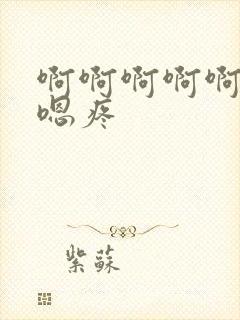 啊啊啊啊啊
嗯疼
紫蘇